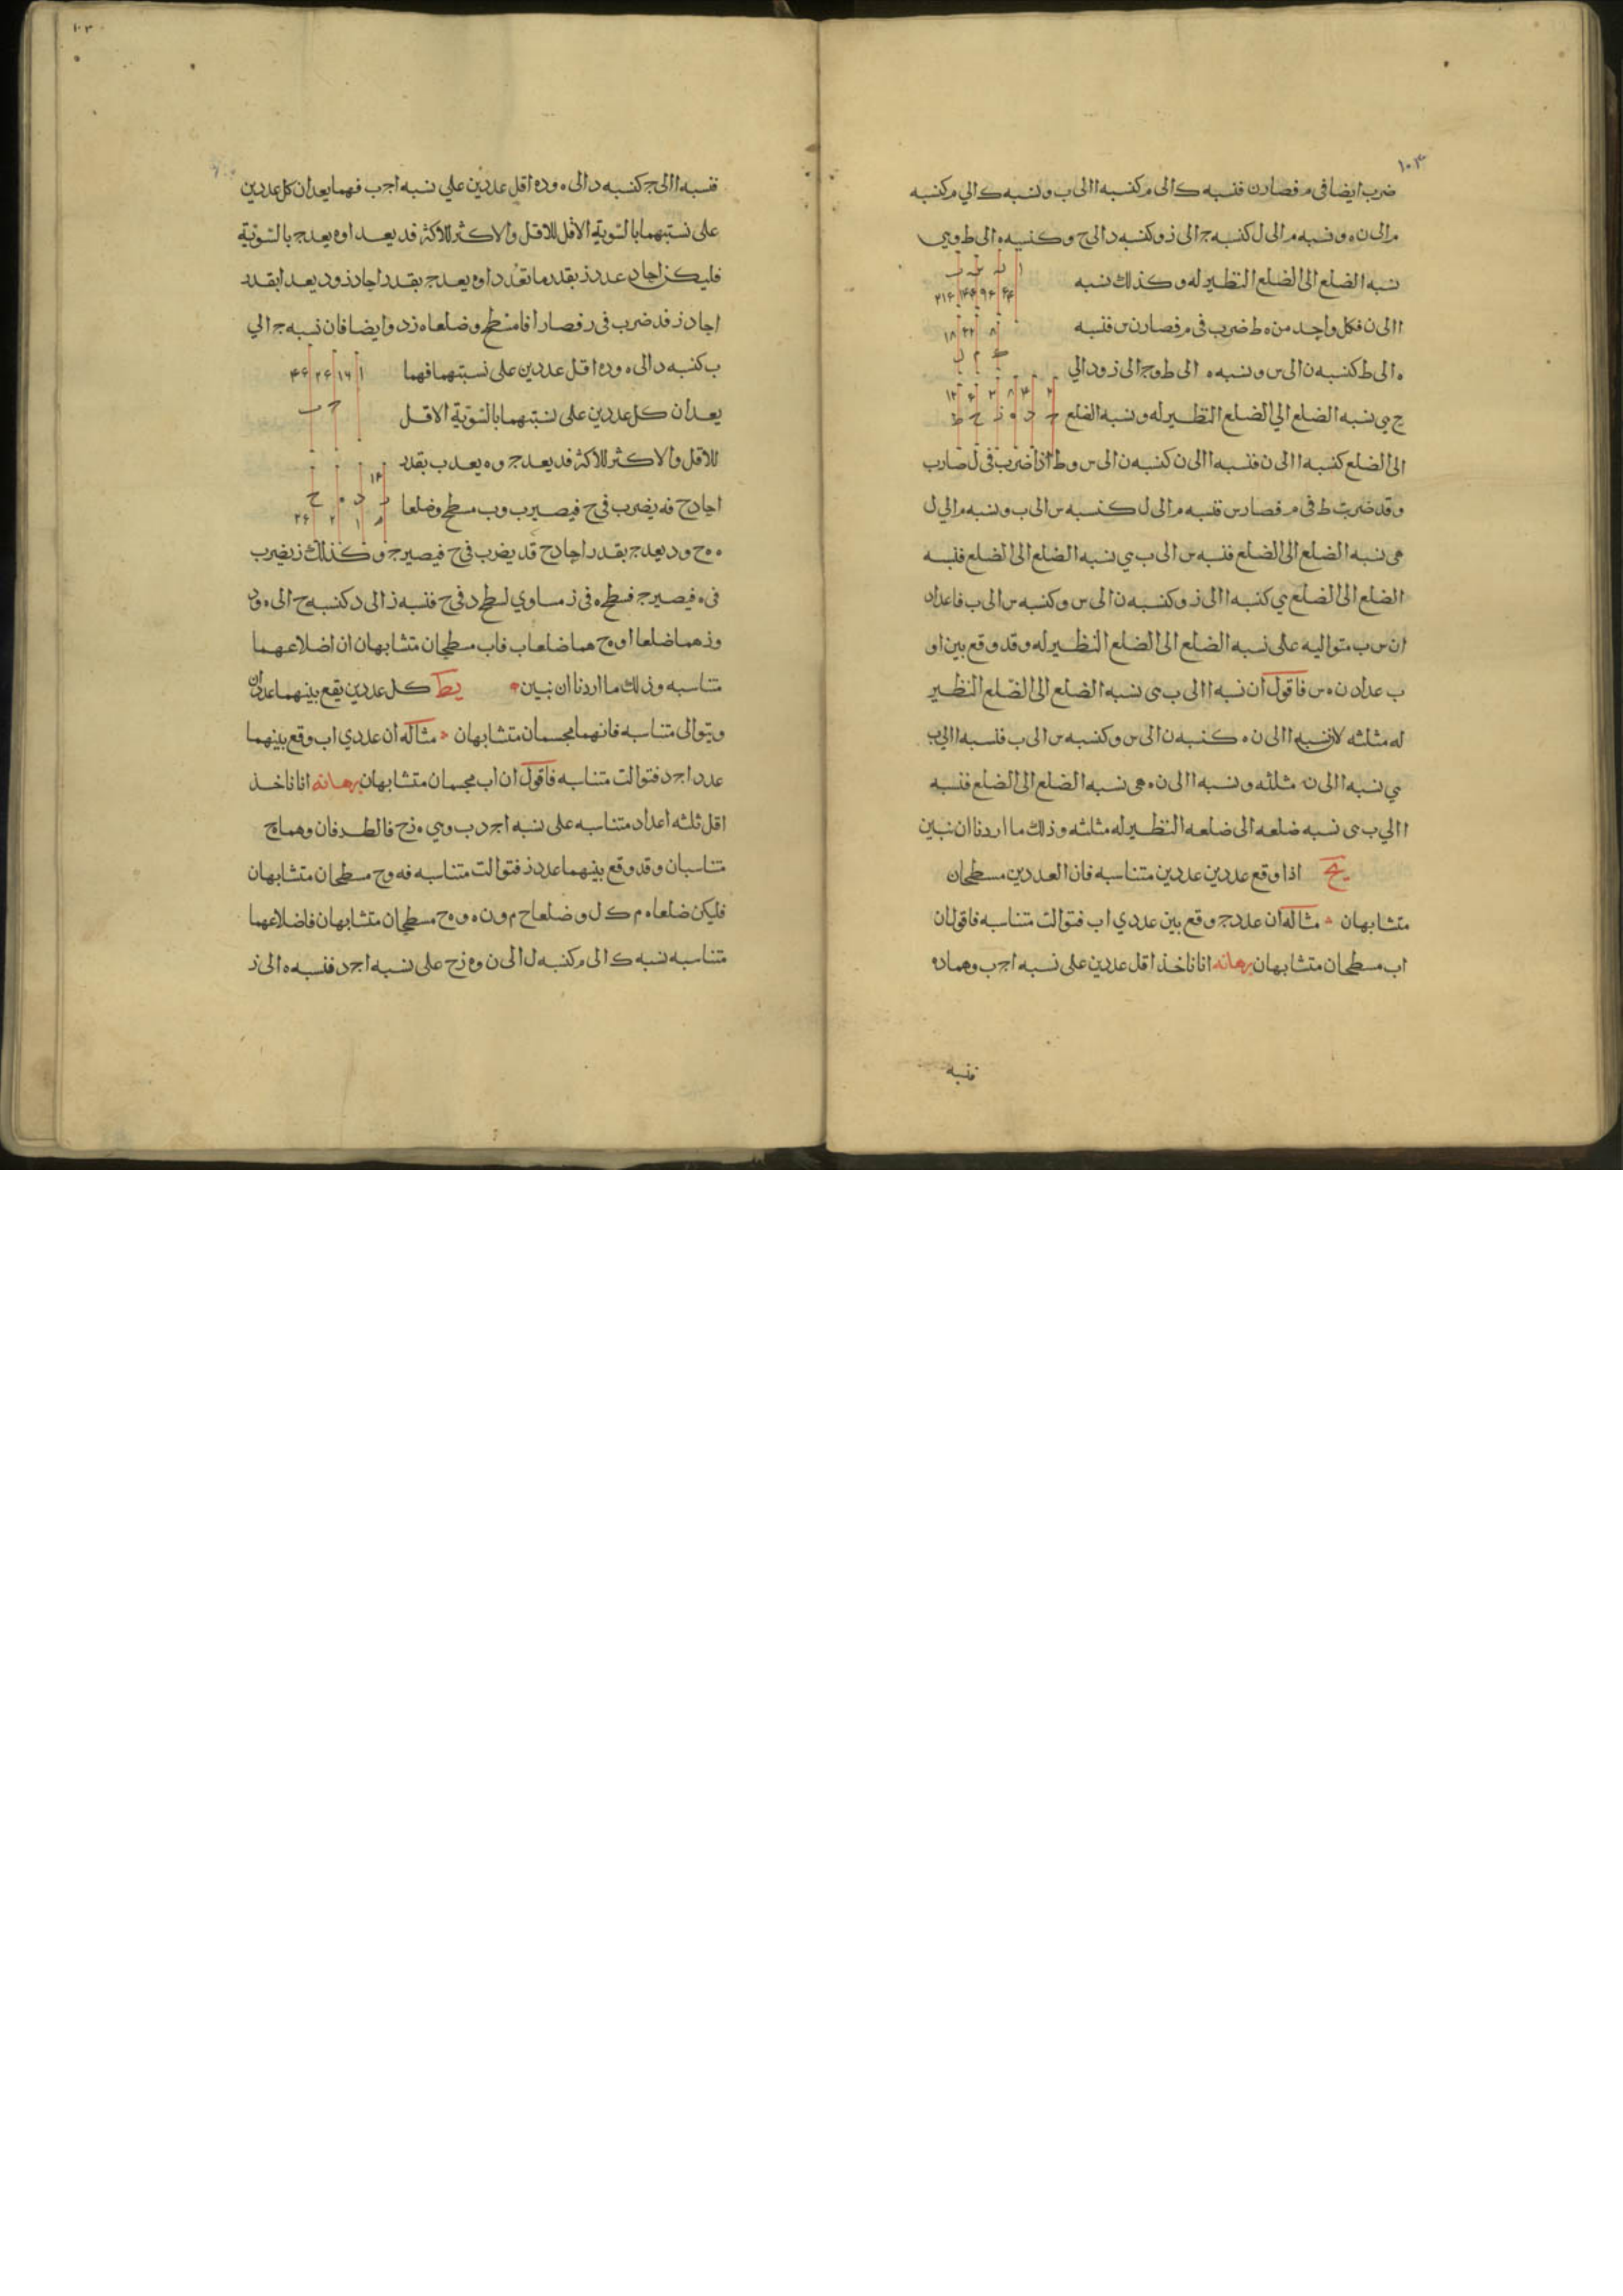 ١٠٣
ضرب ايضا فى م فصار ن فنسبه ك الى م كنسبه ا الى ب ونسبه ك الي م كنسبه
م الى ن ه ونسبه م الى ل كنسبه ج الى ز وكنسبه د الى ح وكنسبه ه الى ط وهي
نسبه الضلع الى الضلع النظير له وكذلك نسبه
ا الى ن فكل واحد من ه ط ضرب فى م فصار ن س فنسبه
ه الى ط كنسبه ن الى س ونسبه ه الى ط و ج الى ز و د الي
ح هي نسبه الضلع الي الضلع النظير له ونسبه الضلع
الى الضلع كنسبه ا الى ن فنسبه ا الى ن كنسبه ن الى س و ط اذا ضرب فى ل صار ب
وقد ضرب ط فى م فصار س فنسبه م الى ل كنسبه س الى ب ونسبه م الي ل
هى نسبه الضلع الى الضلع فنسبه س الى ب هي نسبه الضلع الى الضلع فنسبه
الضلع الى الضلع هي كنسبه ا الى ز وكنسبه ن الى س وكنسبه س الى ب فاعداد
ا ن س ب متواليه على نسبه الضلع الى الضلع النظير له وقد وقع بين ا و
ب عدادن ه س فاقول ان نسبه ا الى ب هى نسبه الضلع الى الضلع النظير
له مثلثه لان نسبه ا الى ن ه كنسبه ن الى س وكنسبه س الى ب فلسبه ا الي ب
هي نسبه ا الى ن مثلثه ونسبه ا الى ن ه هى نسبه الضلع الى الضلع فنسبه
ا الي ب هى نسبه ضلعه الى ضلعه النظير له مثلثه وذلك ما اردنا ان نبين
يح اذا وقع عددين عددين متناسبه فان العددين مسطحان
متشابهان مثاله ان عدد ج وقع بين عددي ا ب فتوالت متناسبه فاقول ان
ا ب مسطحان متشابهان برهانه انا ناخذ اقل عددين على نسبه ا ج ب وهما د ه
فنسبه
١٠٣
فنسبه ا الى ج كنسبه د الى ه و د ه اقل عددين علي نسبه ا ج ب فهما يعدان كل عددين
على نسبتهما بالسّوية الاقل للاقل والاكثر للاكثر فد يعد ا و ه يعد ج بالسّويّة
فليكن احاد عدد ز بقدر ما تعدد ا و ه يعد ج بقدر احاد ز و د يعد ا بقدر
احاد ز فد ضرب فى ز فصار ا فا مسطح وضلعاه ز د وايضا فان نسبه ج الي
ب كنسبه د الى ه و د ه اقل عددين على نسبتهما فهما
يعدان كل عددين على نسبتهما بالسّويّة الاقل
للاقل والاكثر للاكثر فد يعد ج و ه يعد ب بقدر
احاد ح فه يضرب في ح فيصير ب و ب مسطح وضلعا
ه ه ح و د يعد ج بقدر احاد ح فد يضرب في ح فيصير ج وكذلك ز يضرب
فى ه فيصير ج فسطح ه فى ز مساوي لسطح د في ح فنسبه ز الى د كنسبه ح الى ه و د
و ز هما ضلعا ا و ه ح هما ضلعا ب فا ب مسطحان متشابهان ان اضلاعهما
متناسبه وذلك ما اردنا ان نبين يط كل عددين يقع بينهما عددان
ويتوالى متناسبه فانهما مجسمان متشابهان مثاله ان عددي ا ب وقع بينهما
عددا ج د فتوالت متناسبه فاقول ان ا ب مجسمان متشابهان برهانه انا ناخذ
اقل ثلثه اعداد متناسبه على نسبه ا ج د ب وهي ه ز ح فالطرفان وهما ه ح
متناسبان وقد وقع بينهما عدد ز فتوالت متناسبه فه و ح مسطحان متشابهان
فليكن ضلعا ه م ك ل وضلعا ح م و ن ه و ه ح مسطحان متشابهان فاضلاعهما
متناسبه نسبه ك الى م كنسبه ل الى ن و ه ز ح على نسبه ا ج د فنسبه ه الى ز